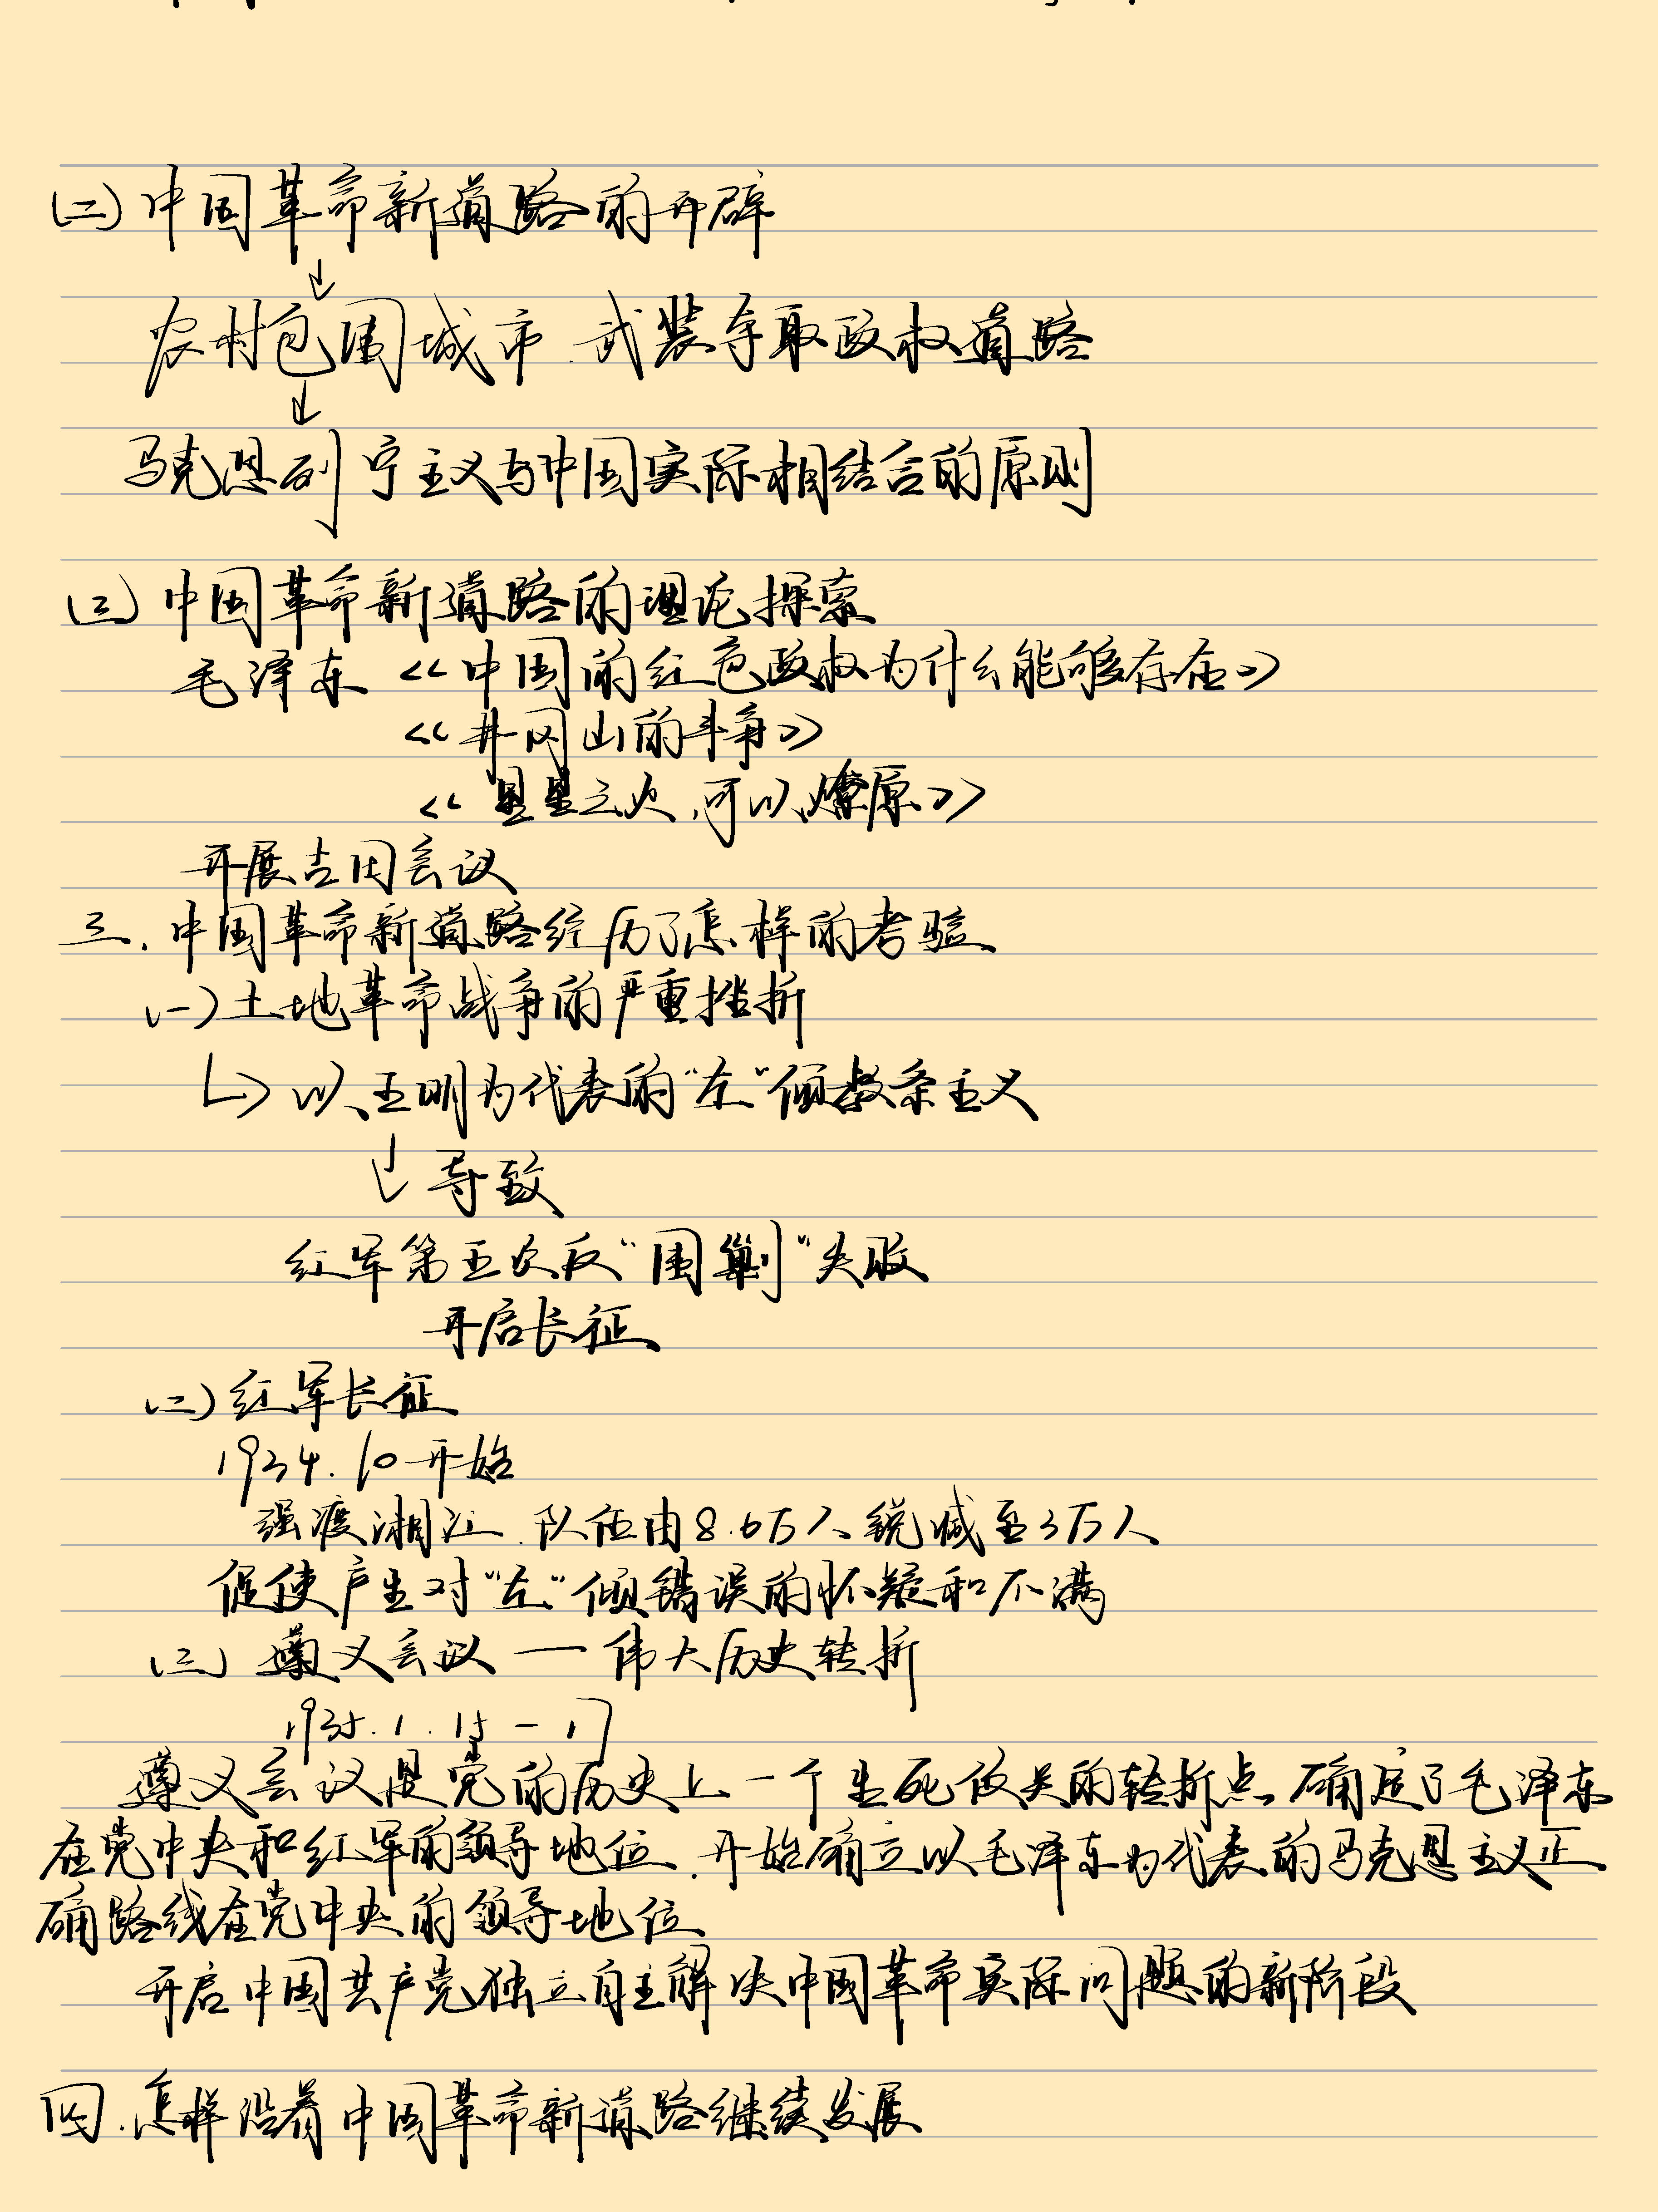 (二)中国革命新道路的开辟
↓
农村包围城市.武装夺取政权道路
↓
马克思列宁主义与中国实际相结合的原则
(三)中国革命新道路的理论探索
毛泽东 <<中国的红色政权为什么能够存在>>
<<井冈山的斗争>>
<<星星之火,可以燎原>>
开展古田会议
三.中国革命新道路经历了怎样的考验
(一)土地革命战争的严重挫折
↳以王明为代表的"左"倾教条主义
↓导致
红军第五次反"围剿"失败
开启长征
(二)红军长征
1934.10开始
强渡湘江.队伍由8.6万人锐减至3万人
促使产生对"左"倾错误的怀疑和不满
(三)遵义会议—伟大历史转折
1935.1.15-17
遵义会议是党的历史上一个生死攸关的转折点.确定了毛泽东
在党中央和红军的领导地位.开始确立以毛泽东为代表的马克思主义正
确路线在党中央的领导地位
开启中国共产党独立自主解决中国革命实际问题的新阶段
四.怎样沿着中国革命新道路继续发展